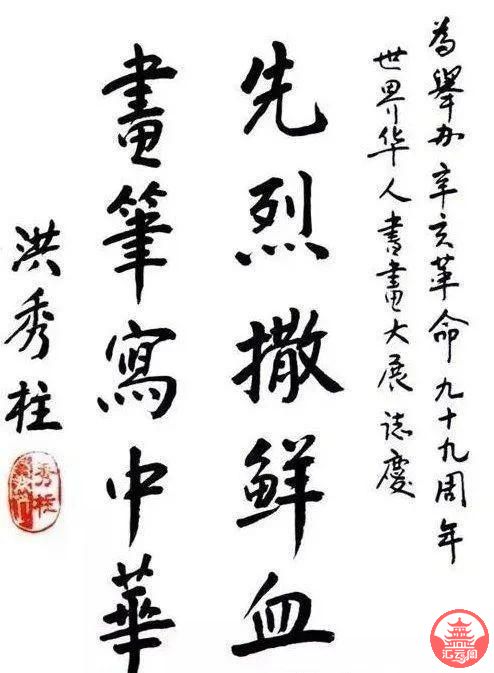 為舉办辛亥革命九十九周年
世界华人書畫大展誌慶
先烈撒鲜血
畫筆寫中華
洪秀柱
秀柱
汇云阁